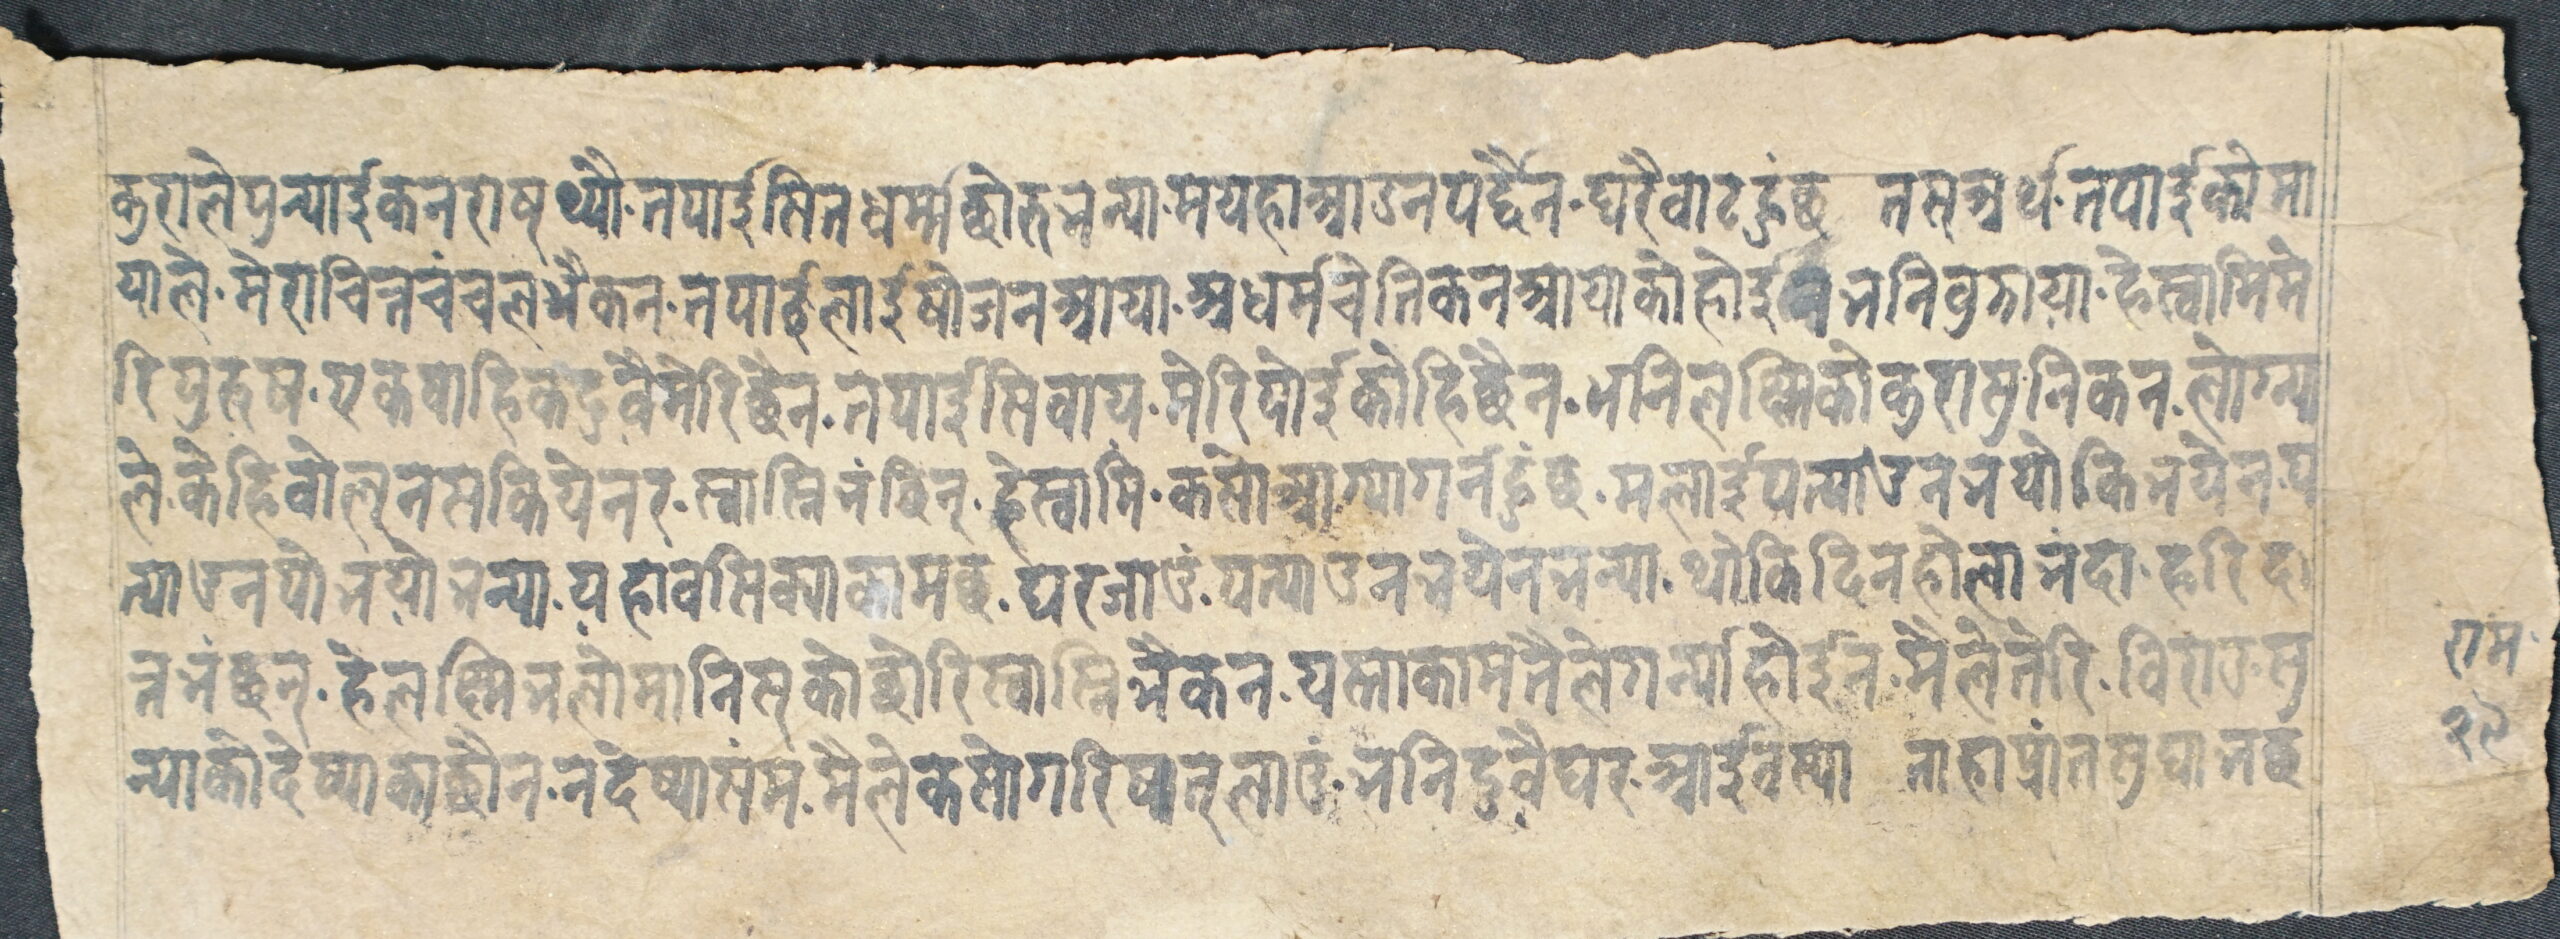 कुरालेपुन्याईकनराषुथ्यौ. तपाईसितधर्मछोरुभन्या. मयहाआउनपर्दैन. घरैबाटहुंछ तसअर्थ. तपाईकोमा
याले. मेराचित्तचंचलभैकन. तपाईलाईषोजनआया. अधर्मचेतिकनआयाकोहोईनभनिवुझाया. हेस्वामिमे
रिपुरुष. एकषाहिकदुवैमेरिछैन. तपाईसिवाय. मेरियेाईकोहिछैन. भनिलक्ष्मिकोकुरासुनिकन. लोग्न्या
ले. केहिवोल्नसकियेनर. स्वास्निभंछिन्. हेस्वामि. कसोआग्यागर्नहुंछ. मलाईपत्याउनभयोकिभयेन. प
त्याउनयोभयोभन्या. यहावसिक्याकामछ. घरजाउं. पत्याउनभयेनभन्या. थोकिदिनहोलाभंदा. हरिद
त्तभंछन्. हेलक्ष्मिभलोमानिस्कोछोरिस्वास्निभैकन. यस्ताकामतैलेगर्न्याहोईन. मैलेतेरि. विराउसु
न्याकोदेष्याकाछौन. नदेष्यासंम. मैलेकसोगरिषत्लाउं. भनिदुवैघर. आईवस्या ताहाप्रांतसुघानछ
राम
२९